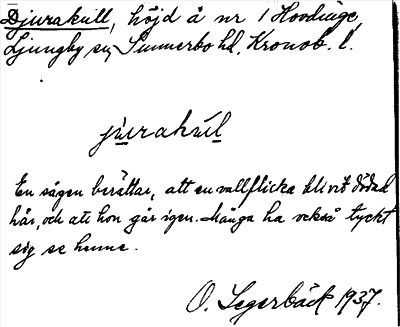 Djurakull, höjd å nr 1 Hovdinge,
Ljungby sn, Sunnerbo hd, Kronob. l.
jùrakúl
En sägen berättar, att en vallflicka blivit dödad
här, och att hon går igen. Många ha också tyckt
sig se henne.
O. Segerbäck 1937.